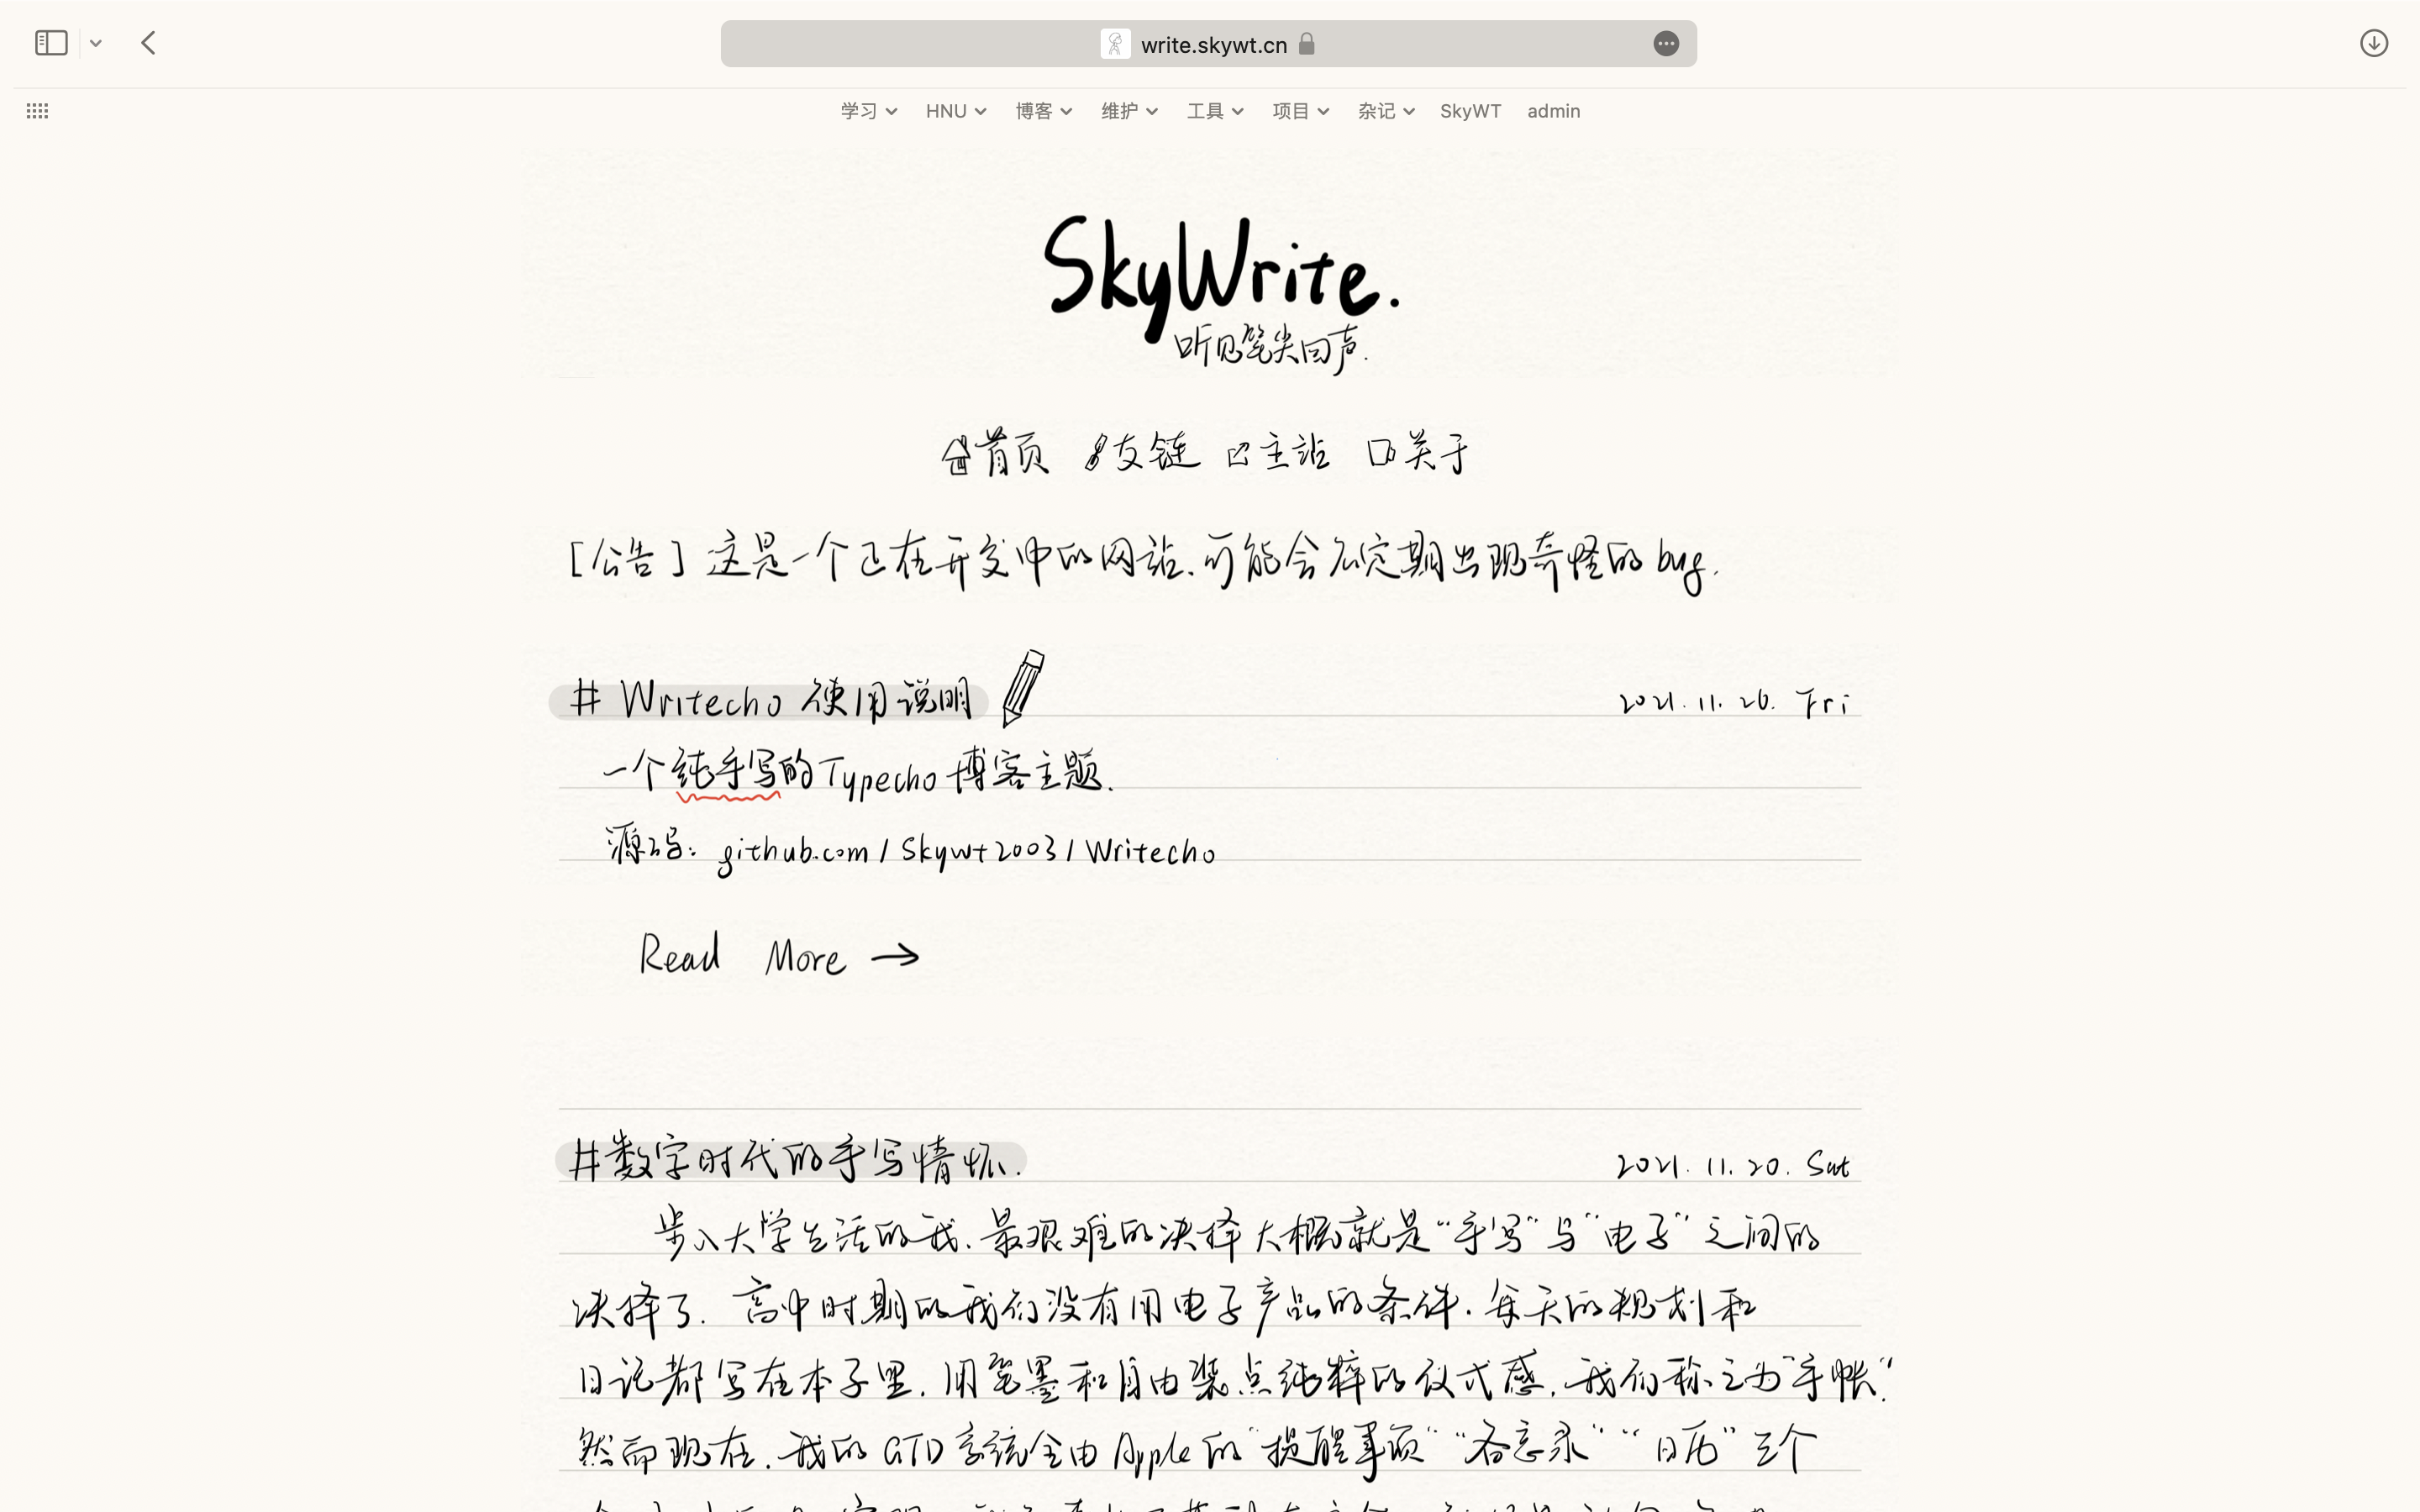 write.skywt.cn
学习 HNU 博客 维护 工具 项目 杂记 SkyWT admin
SkyWrite.
听见笔尖回声.
首页 友链 主站 关于
[公告] 这是一个正在开发中的网站.可能会不定期出现奇怪的 bug.
# Writecho 使用说明 2021.11.26. Fri
一个纯手写的Typecho 博客主题.
源码: github.com/Skywt2003/Writecho
Read More →
#数字时代的手写情怀. 2021.11.20. Sat
步入大学生活的我.最艰难的决择大概就是“手写”与“电子”之间的
决择了. 高中时期的我们没有用电子产品的条件.每天的规划和
日记都写在本子里.用笔墨和自由装点纯粹的仪式感.我们称之为“手帐”.
然而现在.我的 GTD 系统全由 Apple 的“提醒事项”“备忘录”“日历”三个